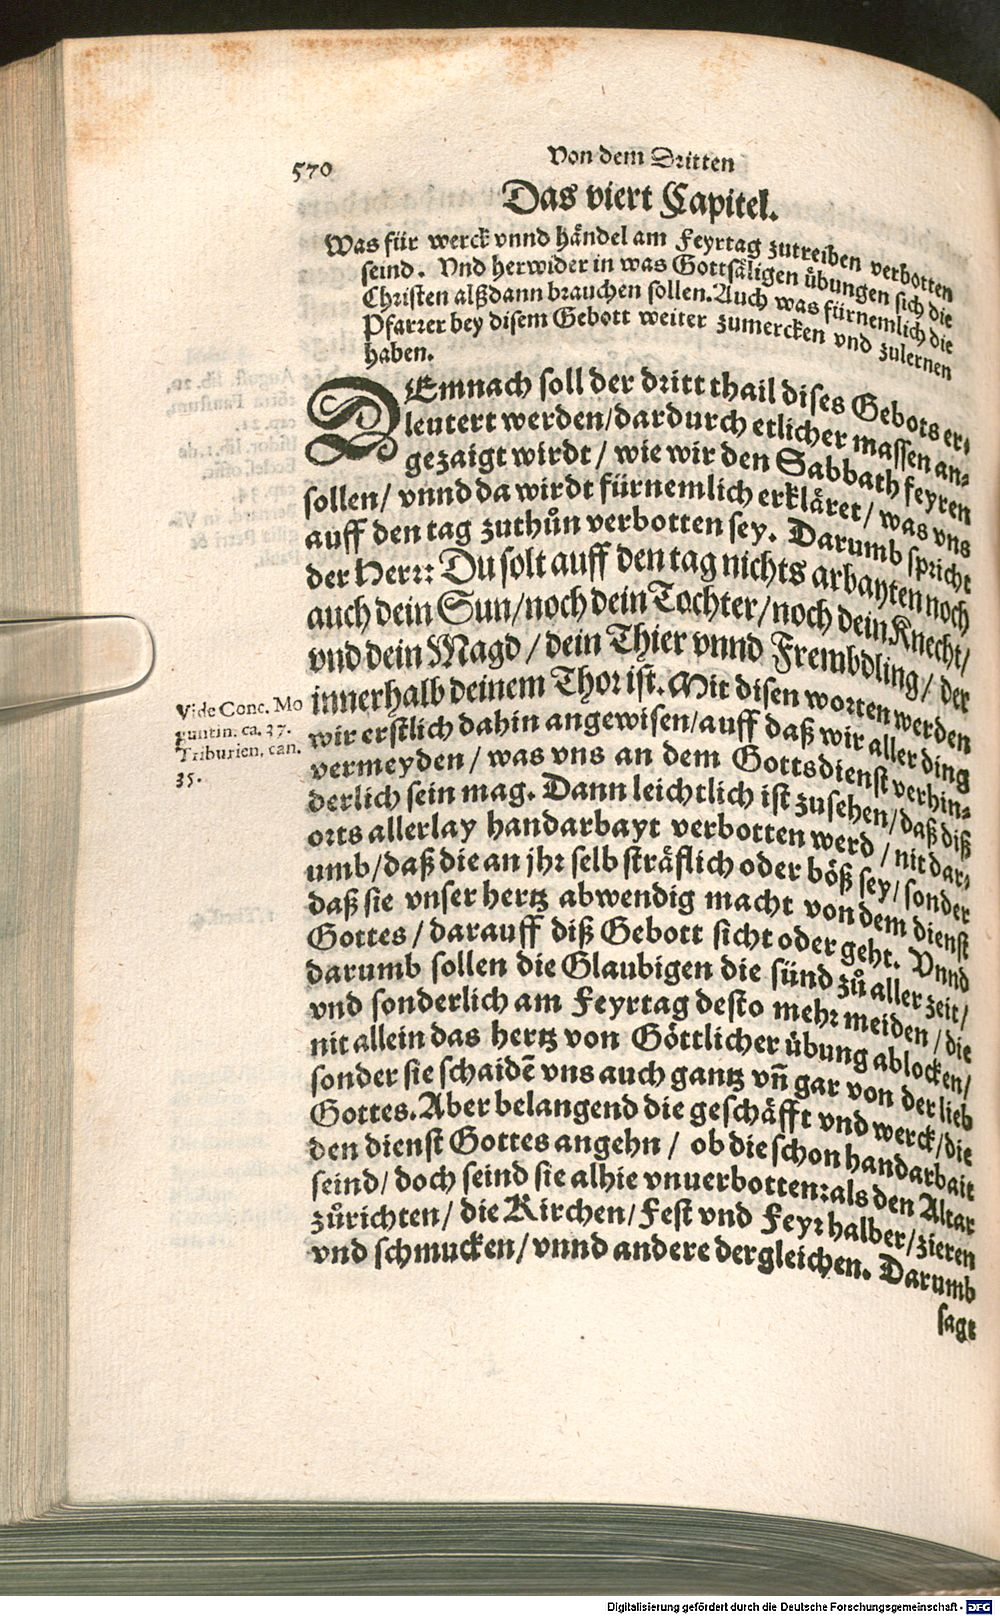 570
Von dem Dritten
Das viert Capitel.
Was für werck vnnd händel am Feyrtag zutreiben verbotten
seind. Vnd herwider in was Gottsäligen übungen sich die
Christen alßdann brauchen sollen. Auch was fürnemlich die
Pfarrer bey disem Gebott weiter zumercken vnd zulernen
haben.
DEmnach soll der dritt thail dises Gebots er⸗
leutert werden/dardurch etlicher massen an⸗
gezaigt wirdt / wie wir den Sabbath feyren
sollen/ vnnd da wirdt fürnemlich erkläret/ was vns
auff den tag zuthůn verbotten sey. Darumb spricht
der Herr: Du solt auff den tag nichts arbayten noch
auch dein Sun/noch dein Tochter/noch dein Knecht/
vnd dein Magd / dein Thier vnnd Frembdling/ der
innerhalb deinem Thor ist. Mit disen worten werden
wir erstlich dahin angewisen/auff daß wir aller ding
vermeyden / was vns an dem Gottsdienst verhin⸗
derlich sein mag. Dann leichtlich ist zusehen/daß diß
orts allerlay handarbayt verbotten werd / nit dar⸗
umb/daß die an jhr selb sträflich oder böß sey/ sonder
daß sie vnser hertz abwendig macht von dem dienst
Gottes / darauff diß Gebott sicht oder geht. Vnnd
darumb sollen die Glaubigen die sünd zů aller zeit/
vnd sonderlich am Feyrtag desto mehr meiden / die
nit allein das hertz von Göttlicher übung ablocken/
sonder sie schaidē vns auch gantz vñ gar von der lieb
Gottes. Aber belangend die geschäfft vnd werck/die
den dienst Gottes angehn / ob die schon handarbait
seind/ doch seind sie alhie vnuerbotten: als den Altar
zůrichten/ die Kirchen/ Fest vnd Feyr halber/ zieren
vnd schmucken/ vnnd andere dergleichen. Darumb
sagt
Vide Conc. Mo
guntin. ca. 37.
Triburien, can.
35.
Digitalisierung gefördert durch die Deutsche Forschungsgemeinschaft - DFG